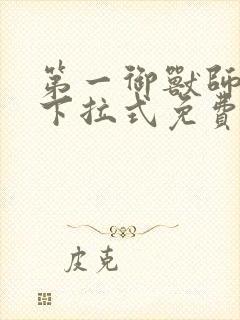 第一御獸師
下拉式免費
皮克